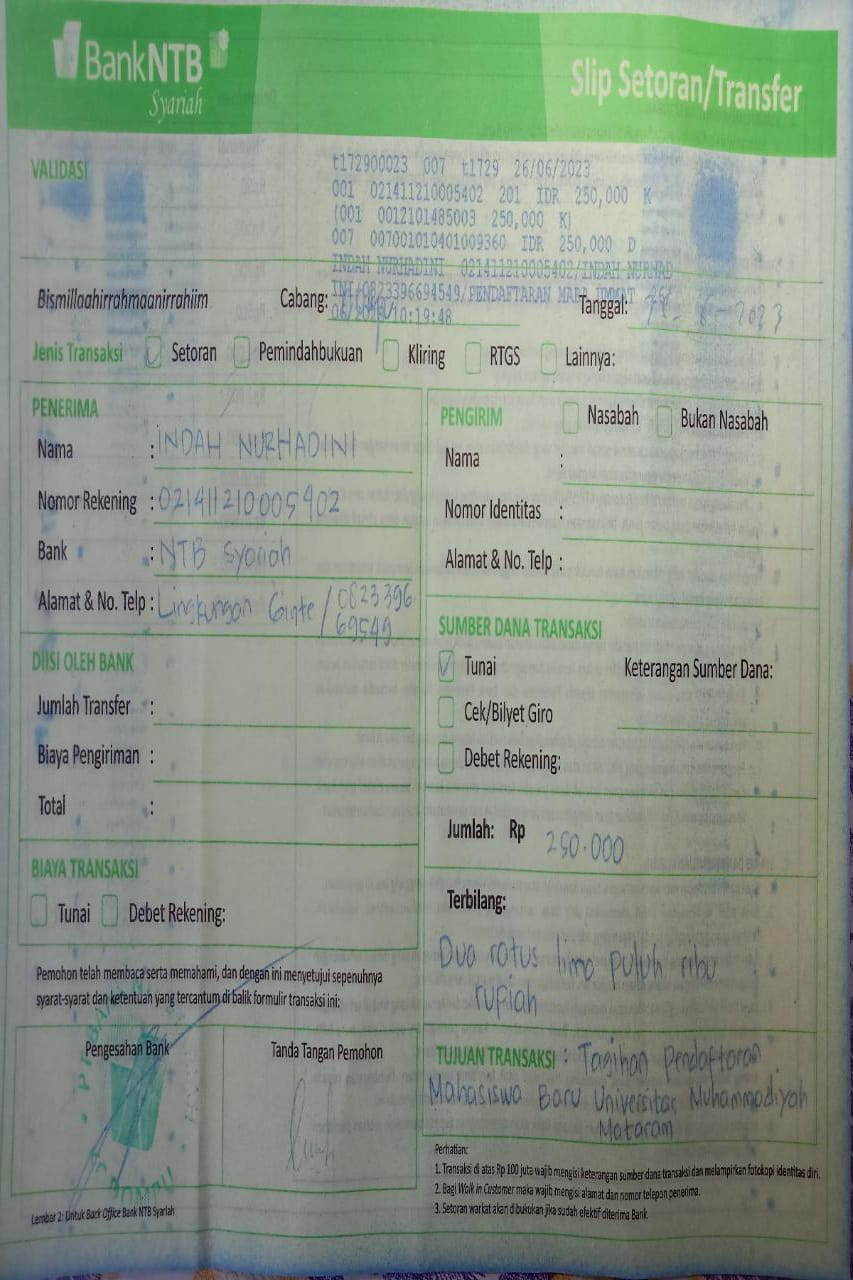 BankNTB
Syariah
Slip Setoran/Transfer
VALIDASI
t172900023 007 t1729 26/06/2023
001 021411210005402 201 IDR 250,000 K
(001 0012101485003 250,000 K)
007 007001010401009360 IDR 250,000 D
INDAH NURHADINI 021411210005402/INDAH NURHAD
INI/0823396694549/PENDAFTARAN MABA UMMAT
06/2023/10:19:48
Bismillaahirrahmaanirrahiim Cabang: Tanggal: 2023
Jenis Transaksi Setoran Pemindahbukuan Kliring RTGS Lainnya:
PENERIMA
Nama : INDAH NURHADINI
Nomor Rekening : 021411210005402
Bank : NTB Syariah
Alamat & No. Telp : Lingkungan Ginte / 0823396
69549
PENGIRIM Nasabah Bukan Nasabah
Nama :
Nomor Identitas :
Alamat & No. Telp :
DIISI OLEH BANK
Jumlah Transfer :
Biaya Pengiriman :
Total :
SUMBER DANA TRANSAKSI
Tunai Keterangan Sumber Dana:
Cek/Bilyet Giro
Debet Rekening:
Jumlah: Rp 250.000
BIAYA TRANSAKSI
Tunai Debet Rekening:
Terbilang:
Dua ratus lima puluh ribu
rupiah
Pemohon telah membaca serta memahami, dan dengan ini menyetujui sepenuhnya
syarat-syarat dan ketentuan yang tercantum di balik formulir transaksi ini:
Pengesahan Bank Tanda Tangan Pemohon
TUJUAN TRANSAKSI : Tagihan Pendaftaran
Mahasiswa Baru Universitas Muhammadiyah
Mataram
Perhatian:
1. Transaksi di atas Rp 100 juta wajib mengisi keterangan sumber dana transaksi dan melampirkan fotokopi identitas diri.
2. Bagi Walk in Customer maka wajib mengisi alamat dan nomor telepon penerima.
3. Setoran warkat akan dibukukan jika sudah efektif diterima Bank
Lembar 2: Untuk Back Office Bank NTB Syariah